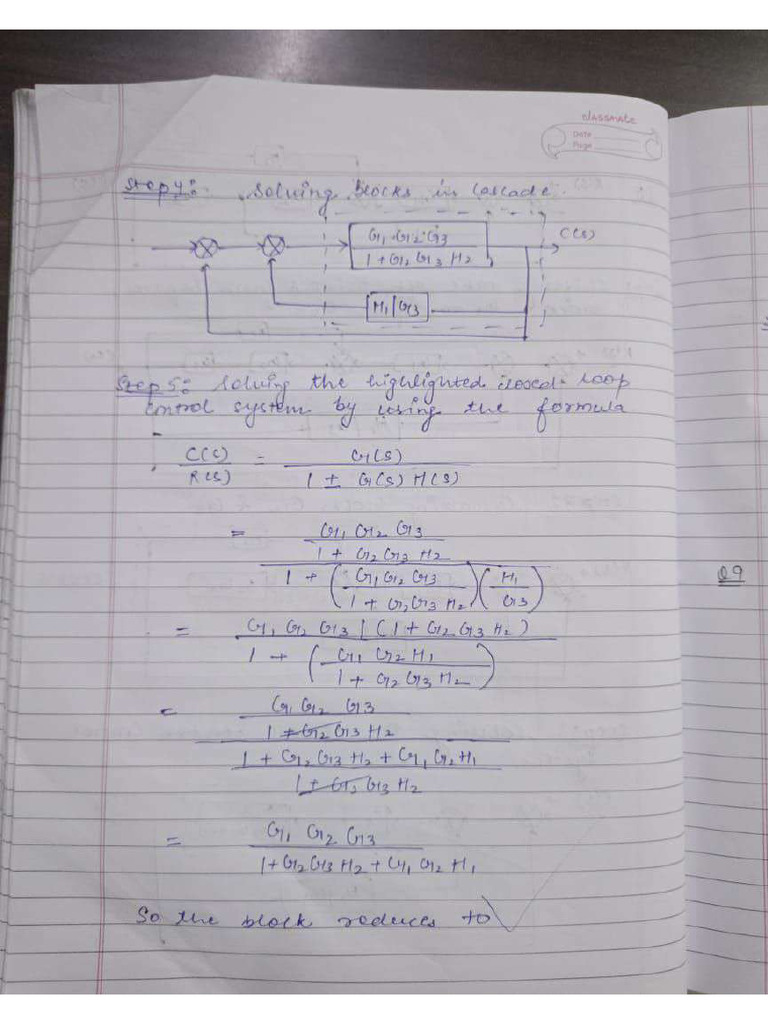 classmate
Date
Page
Step 4:- Solving blocks in cascade.
G1 . G2 . G3
1 + G2 G3 H2
C(s)
H1/G3
Step 5:- Solving the highlighted closed-loop
control system by using the formula
C(s)/R(s) = G(s)/(1 ± G(s) H(s))
= (G1 G2 G3/(1 + G2 G3 H2))/(1 + (G1 G2 G3/(1 + G2 G3 H2)) (H1/G3))
= G1 G2 G3 / (1 + G2 G3 H2)
1 + (G1 G2 H1/(1 + G2 G3 H2))
= G1 G2 G3
1 + G2 G3 H2
1 + G2 G3 H2 + G1 G2 H1
1 + G2 G3 H2
= G1 G2 G3
1 + G2 G3 H2 + G1 G2 H1
So the block reduces to
Q9